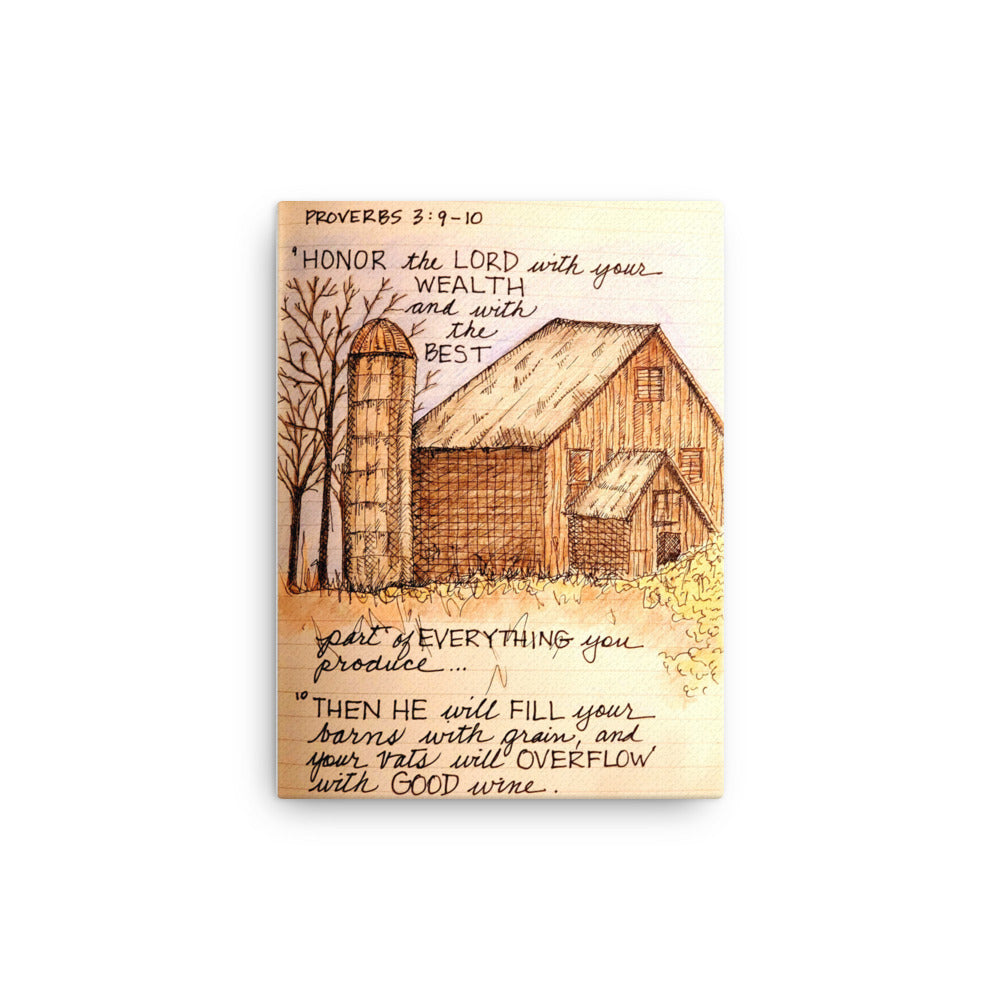 PROVERBS 3:9-10
9 HONOR the LORD with your
WEALTH
and with
the
BEST
part of EVERYTHING you
produce...
10 THEN HE will FILL your
barns with grain, and
your vats will OVERFLOW
with GOOD wine.